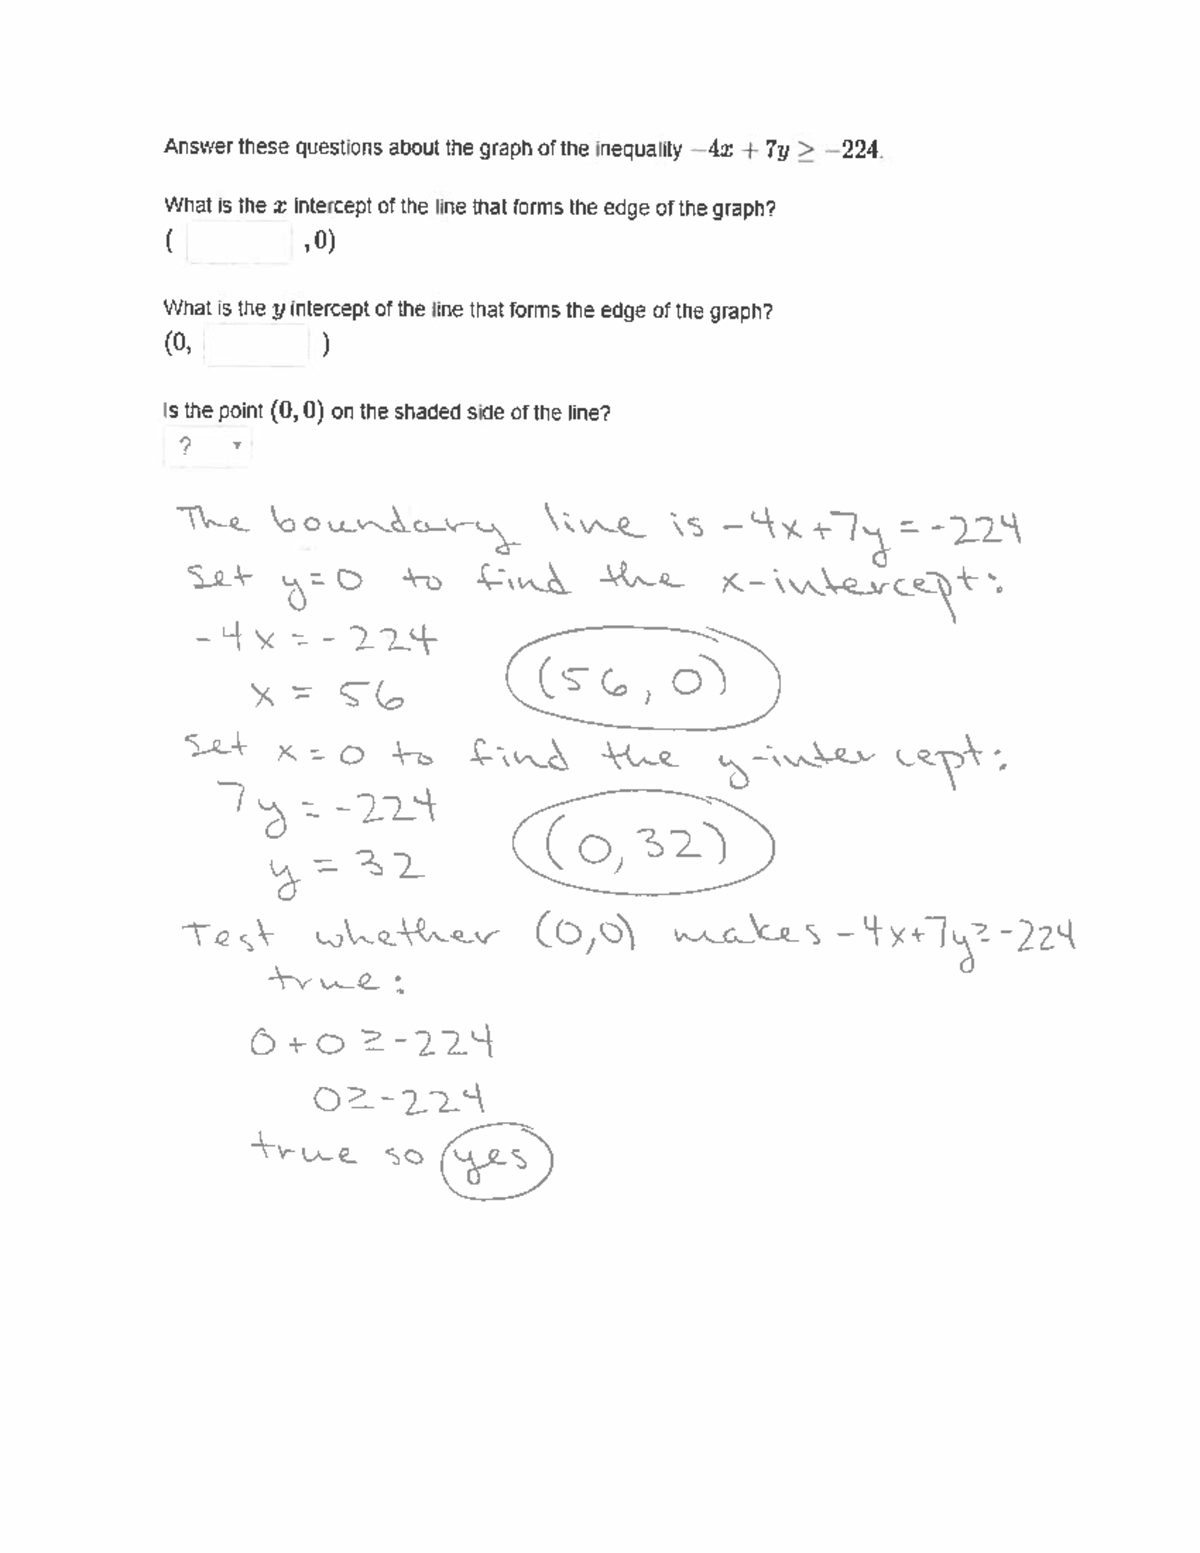 Answer these questions about the graph of the inequality −4x + 7y ≥ −224.
What is the x intercept of the line that forms the edge of the graph?
( , 0)
What is the y intercept of the line that forms the edge of the graph?
(0, )
Is the point (0, 0) on the shaded side of the line?
? ▼
The boundary line is -4x+7y = -224
Set y=0 to find the x-intercept:
-4x = -224
x = 56 (56, 0)
Set x=0 to find the y-intercept:
7y = -224
y = 32 (0, 32)
Test whether (0,0) makes -4x+7y≥-224
true:
0+0 ≥ -224
0≥-224
true so yes